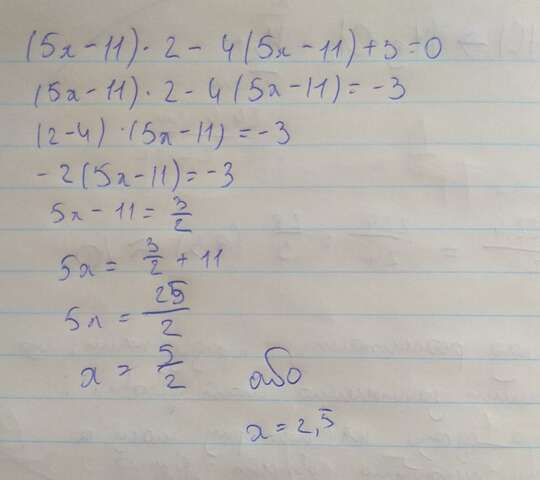 (5x-11)·2-4(5x-11)+3=0
(5x-11)·2-4(5x-11)=-3
(2-4)·(5x-11)=-3
-2(5x-11)=-3
5x-11=3/2
5x=3/2+11
5x=25/2
x=5/2 або
x=2,5